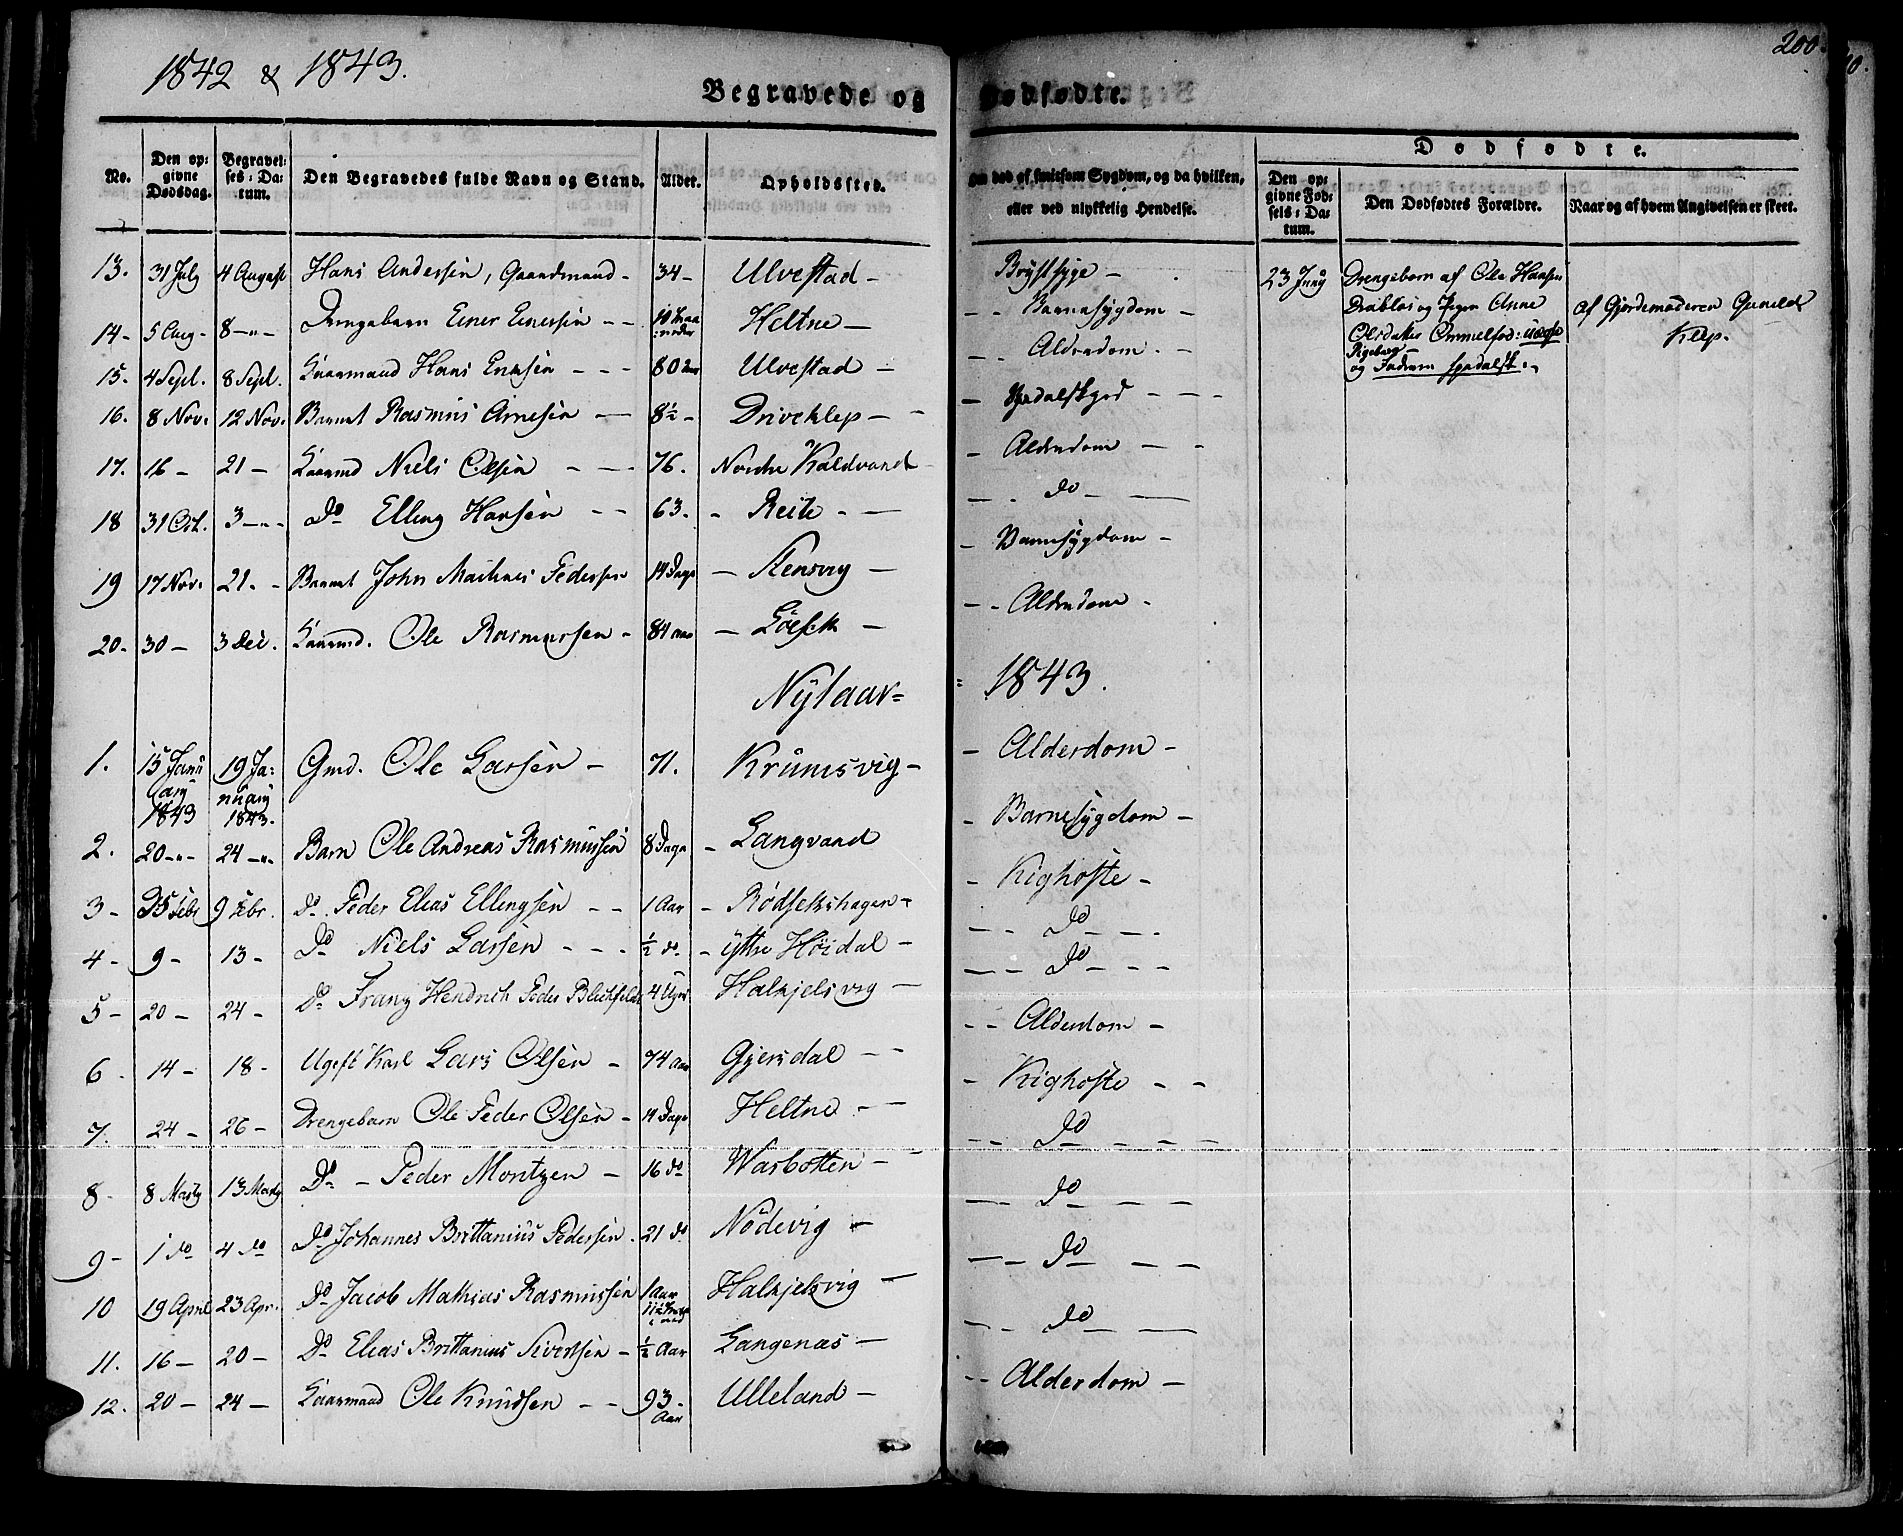 1842 & 1843.
200.
Begravede og Dødfødte.
No.
Den opgivne Dødsdag.
Begravelses-Datum.
Den Begravedes fulde Navn og Stand.
Alder.
Opholdssted.
ved af smitsom Sygdom, og da hvilken, eller ved ulykkelig Hendelse.
Dødfødte.
Den opgivne Fødsels-Datum.
Den Dødfødtes Forældre.
Naar og af hvem Angivelsen er skeet.
13. 31 July 4 August Hans Andersen, Gaardmand - 34 - Ulvestad - Brystsyge -
14 - 5 Aug - 8 -"- Drengebarn Einer Einersen - - Heltne - - - Barnesygdom -
15. 4 Sept. 8 Sept. Kaarmand Hans - - - 80 Ulvestad - - - Alderdom. -
16. 8 Nov. 12 Nov. Barnet Rasmus Arnesen - 8½ - Driveklep - - - Spedalskhed - - -
17. 16 - 21 - Kaarmd Niels Olsen - - - 76. Nordre Kaldvand - - Alderdom - -
18 31 Oct. 3 -"- Do Elling Hansen - - 63. - Reite - - - - do - -
19 17 Nov. 21. - Barnet John Pedersen 14 Dage - Stensvig - - Barnesygdom -
20. 30 - 3 Dec. Kaarmd. Ole Rasmussen - 84 Aar - Løset - - - Alderdom -
Nytaar = 1843.
1. 15 Januarij 1843 19 Januarij 1843. Gmd. Ole Larsen - 71. Krumsvig - - Alderdom -
2. 20 -"- 24 -"- Barn Ole Andreas Rasmussen 8 Dage - Langvand - Barnesygdom -
3 - 5 Febr 9 Febr. Do. Peder Elias Ellingsen - - 1 Aar - Rødsetshagen - - Kighoste -
4 - 9 - 13 - Do Niels Larsen - - - ½ do. - Yttre Høidal - - - Do - -
5 - 20 - 24 - Do Franz Hendrich Peder Blichfeldt 4 Uger Halkjelsvig - - - Do - - -
6 - 14 - 18 - Ugift Karl Lars Olsen - 74 Aar Gjersdal - - - - Alderdom -
7. 24 - 26 - Drengebarn Ole Peder Olsen - 14 Dage Heltne - - - Kighoste - -
8 - 8 Martz 13 Martz Do - Peder Moritzen - 16 do Wasbotten - - - Do - - -
9 - 1 do 4 do Do Johannes Brittanius Pedersen. 21 do Nødevig - - - do - -
10 19 April 23 Apr. Do Jacob Mathias Rasmussen 1 Aar Halkjelsvig - - - do - -
11. 16 - 20 - Do Elias Brittanius Sivertsen - ½ Aar Langenæs - - - do - -
12. 20 - 24 - Kaarmand Ole Knudsen - - 93 - Aar Ulleland - - - Alderdom -
23 Juny
Drengebarn af Ole Hansen
Drabløs og Pigen Anne
Olsdatter Ommelfod: uægte
og Faderen spedalsk.
af Gjordemoderen Gunild
Klep.